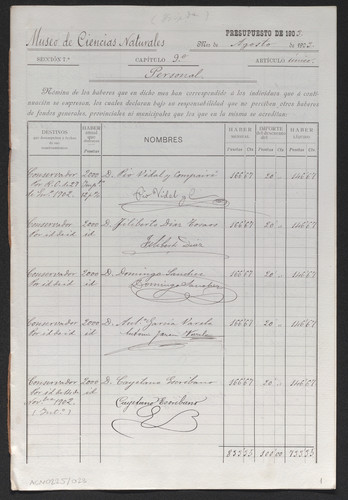 Museo de Ciencias Naturales
PRESUPUESTO DE 1903.
Mes de Agosto de 1903.
SECCIÓN 7.ª CAPÍTULO 9.º ARTÍCULO único.
Personal.
Nómina de los haberes que en dicho mes han correspondido á los individuos que á conti-
nuación se expresan, los cuales declaran bajo su responsabilidad que no perciben otros haberes
de fondos generales, provinciales ni municipales que los que en la misma se acreditan:
DESTINOS
HABER
anual.
Pesetas
NOMBRES
HABER
íntegro.
Pesetas Cts.
IMPORTE
del descuento
Pesetas Cts.
HABER
líquido.
Pesetas Cts.
Conservador 2000 D. Pío Vidal y Compairé 166 67 20 " 146 67
por R. O. de 23
1902.
Pío Vidal y C.
Conservador 2000 D. Filiberto Díaz Tosaos 166 67 20 " 146 67
por id de id id
Filiberto Díaz
Conservador 2000 D. Domingo Sánchez 166 67 20 " 146 67
por id de id id
Domingo Sánchez
Conservador 2000 D. Antº García Varela 166 67 20 " 146 67
por id de id id
Antonio García Varela
Conservador 2000 D. Cayetano Escribano 166 67 20 " 146 67
1902.
Cayetano Escribano
833 35 100 00 733 35